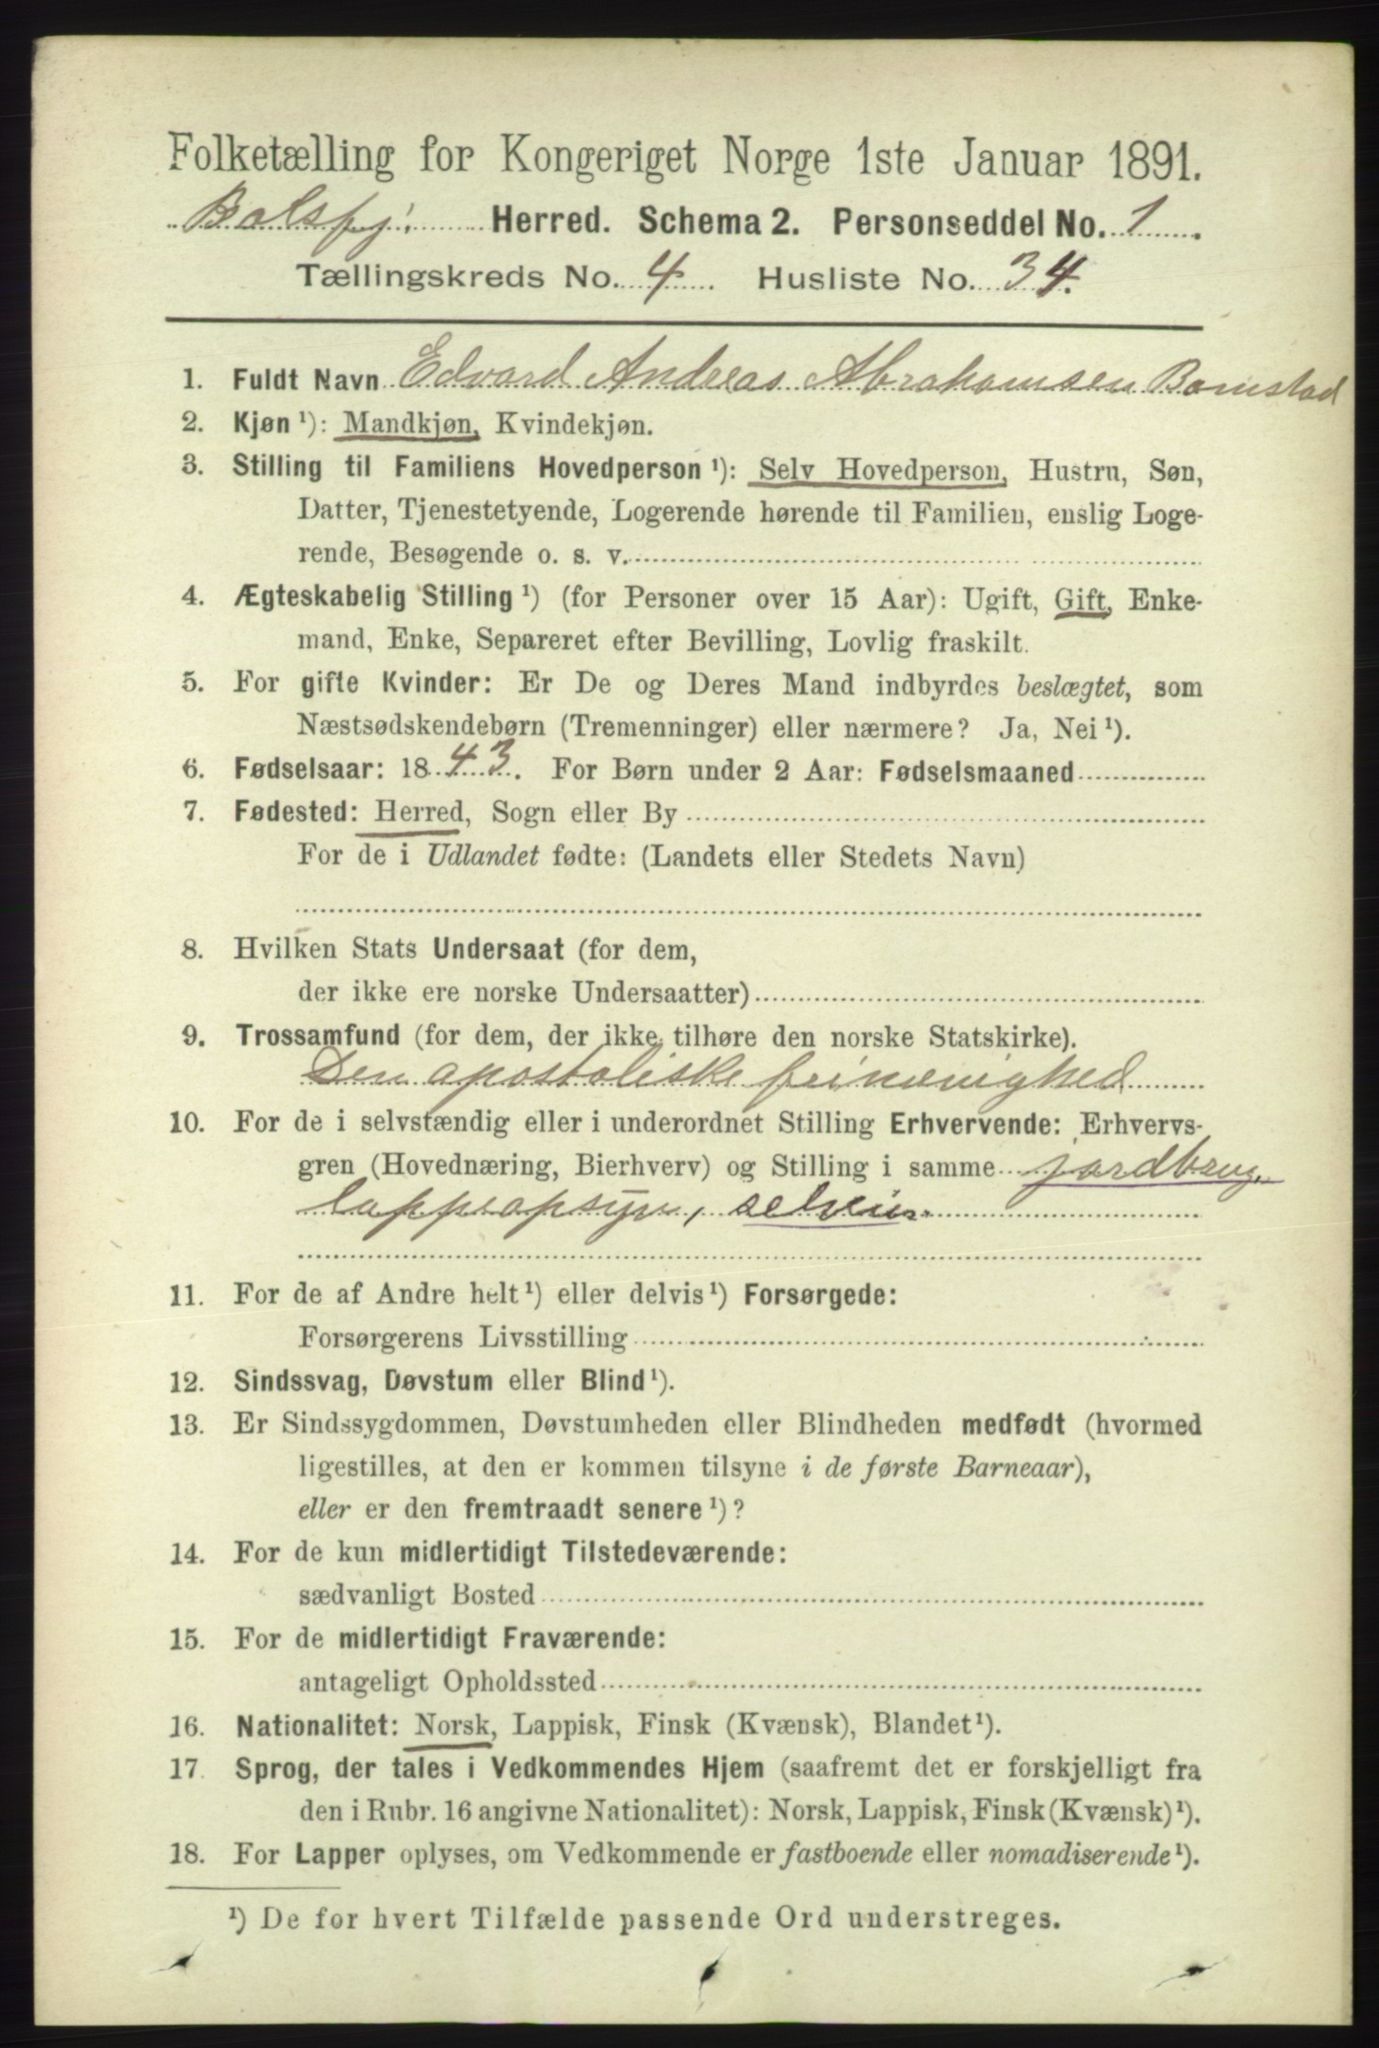 Folketælling for Kongeriget Norge 1ste Januar 1891.
Balsfj. Herred. Schema 2. Personseddel No. 1.
Tællingskreds No. 4. Husliste No. 34.
1. Fuldt Navn Edvard Andreas Abrahamsen Bomstad
2. Kjøn ¹): Mandkjøn, Kvindekjøn.
3. Stilling til Familiens Hovedperson ¹): Selv Hovedperson, Hustru, Søn,
Datter, Tjenestetyende, Logerende hørende til Familien, enslig Loge-
rende, Besøgende o. s. v.
4. Ægteskabelig Stilling ¹) (for Personer over 15 Aar): Ugift, Gift, Enke-
mand, Enke, Separeret efter Bevilling, Lovlig fraskilt.
5. For gifte Kvinder: Er De og Deres Mand indbyrdes beslægtet, som
Næstsødskendebørn (Tremenninger) eller nærmere? Ja, Nei ¹).
6. Fødselsaar: 1843. For Børn under 2 Aar: Fødselsmaaned
7. Fødested: Herred, Sogn eller By
For de i Udlandet fødte: (Landets eller Stedets Navn)
8. Hvilken Stats Undersaat (for dem,
der ikke ere norske Undersaatter)
9. Trossamfund (for dem, der ikke tilhøre den norske Statskirke).
Den apostoliske frimenighed
10. For de i selvstændig eller i underordnet Stilling Erhvervende: Erhvervs-
gren (Hovednæring, Bierhverv) og Stilling i samme jordbrug,
lappeopsyn, selveier.
11. For de af Andre helt ¹) eller delvis ¹) Forsørgede:
Forsørgerens Livsstilling
12. Sindssvag, Døvstum eller Blind ¹).
13. Er Sindssygdommen, Døvstumheden eller Blindheden medfødt (hvormed
ligestilles, at den er kommen tilsyne i de første Barneaar),
eller er den fremtraadt senere ¹)?
14. For de kun midlertidigt Tilstedeværende:
sædvanligt Bosted
15. For de midlertidigt Fraværende:
antageligt Opholdssted
16. Nationalitet: Norsk, Lappisk, Finsk (Kvænsk), Blandet ¹).
17. Sprog, der tales i Vedkommendes Hjem (saafremt det er forskjelligt fra
den i Rubr. 16 angivne Nationalitet): Norsk, Lappisk, Finsk (Kvænsk) ¹).
18. For Lapper oplyses, om Vedkommende er fastboende eller nomadiserende ¹).
¹) De for hvert Tilfælde passende Ord understreges.